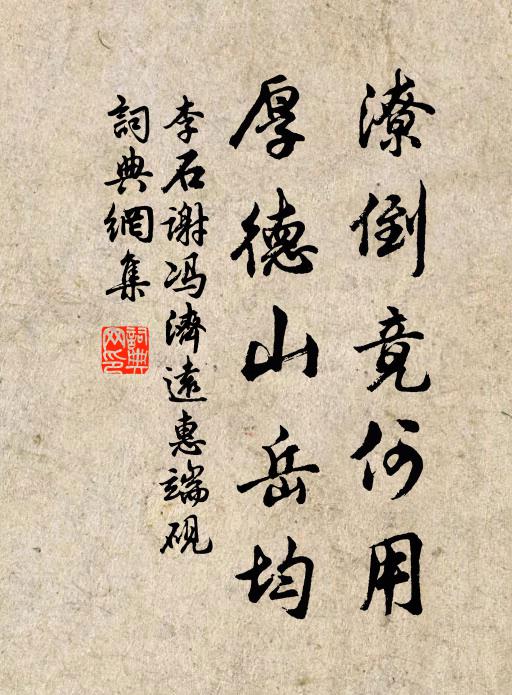 潦倒竟何用
厚德山岳均
李石谢冯濟遠惠端砚
詞典網集
詞典网印